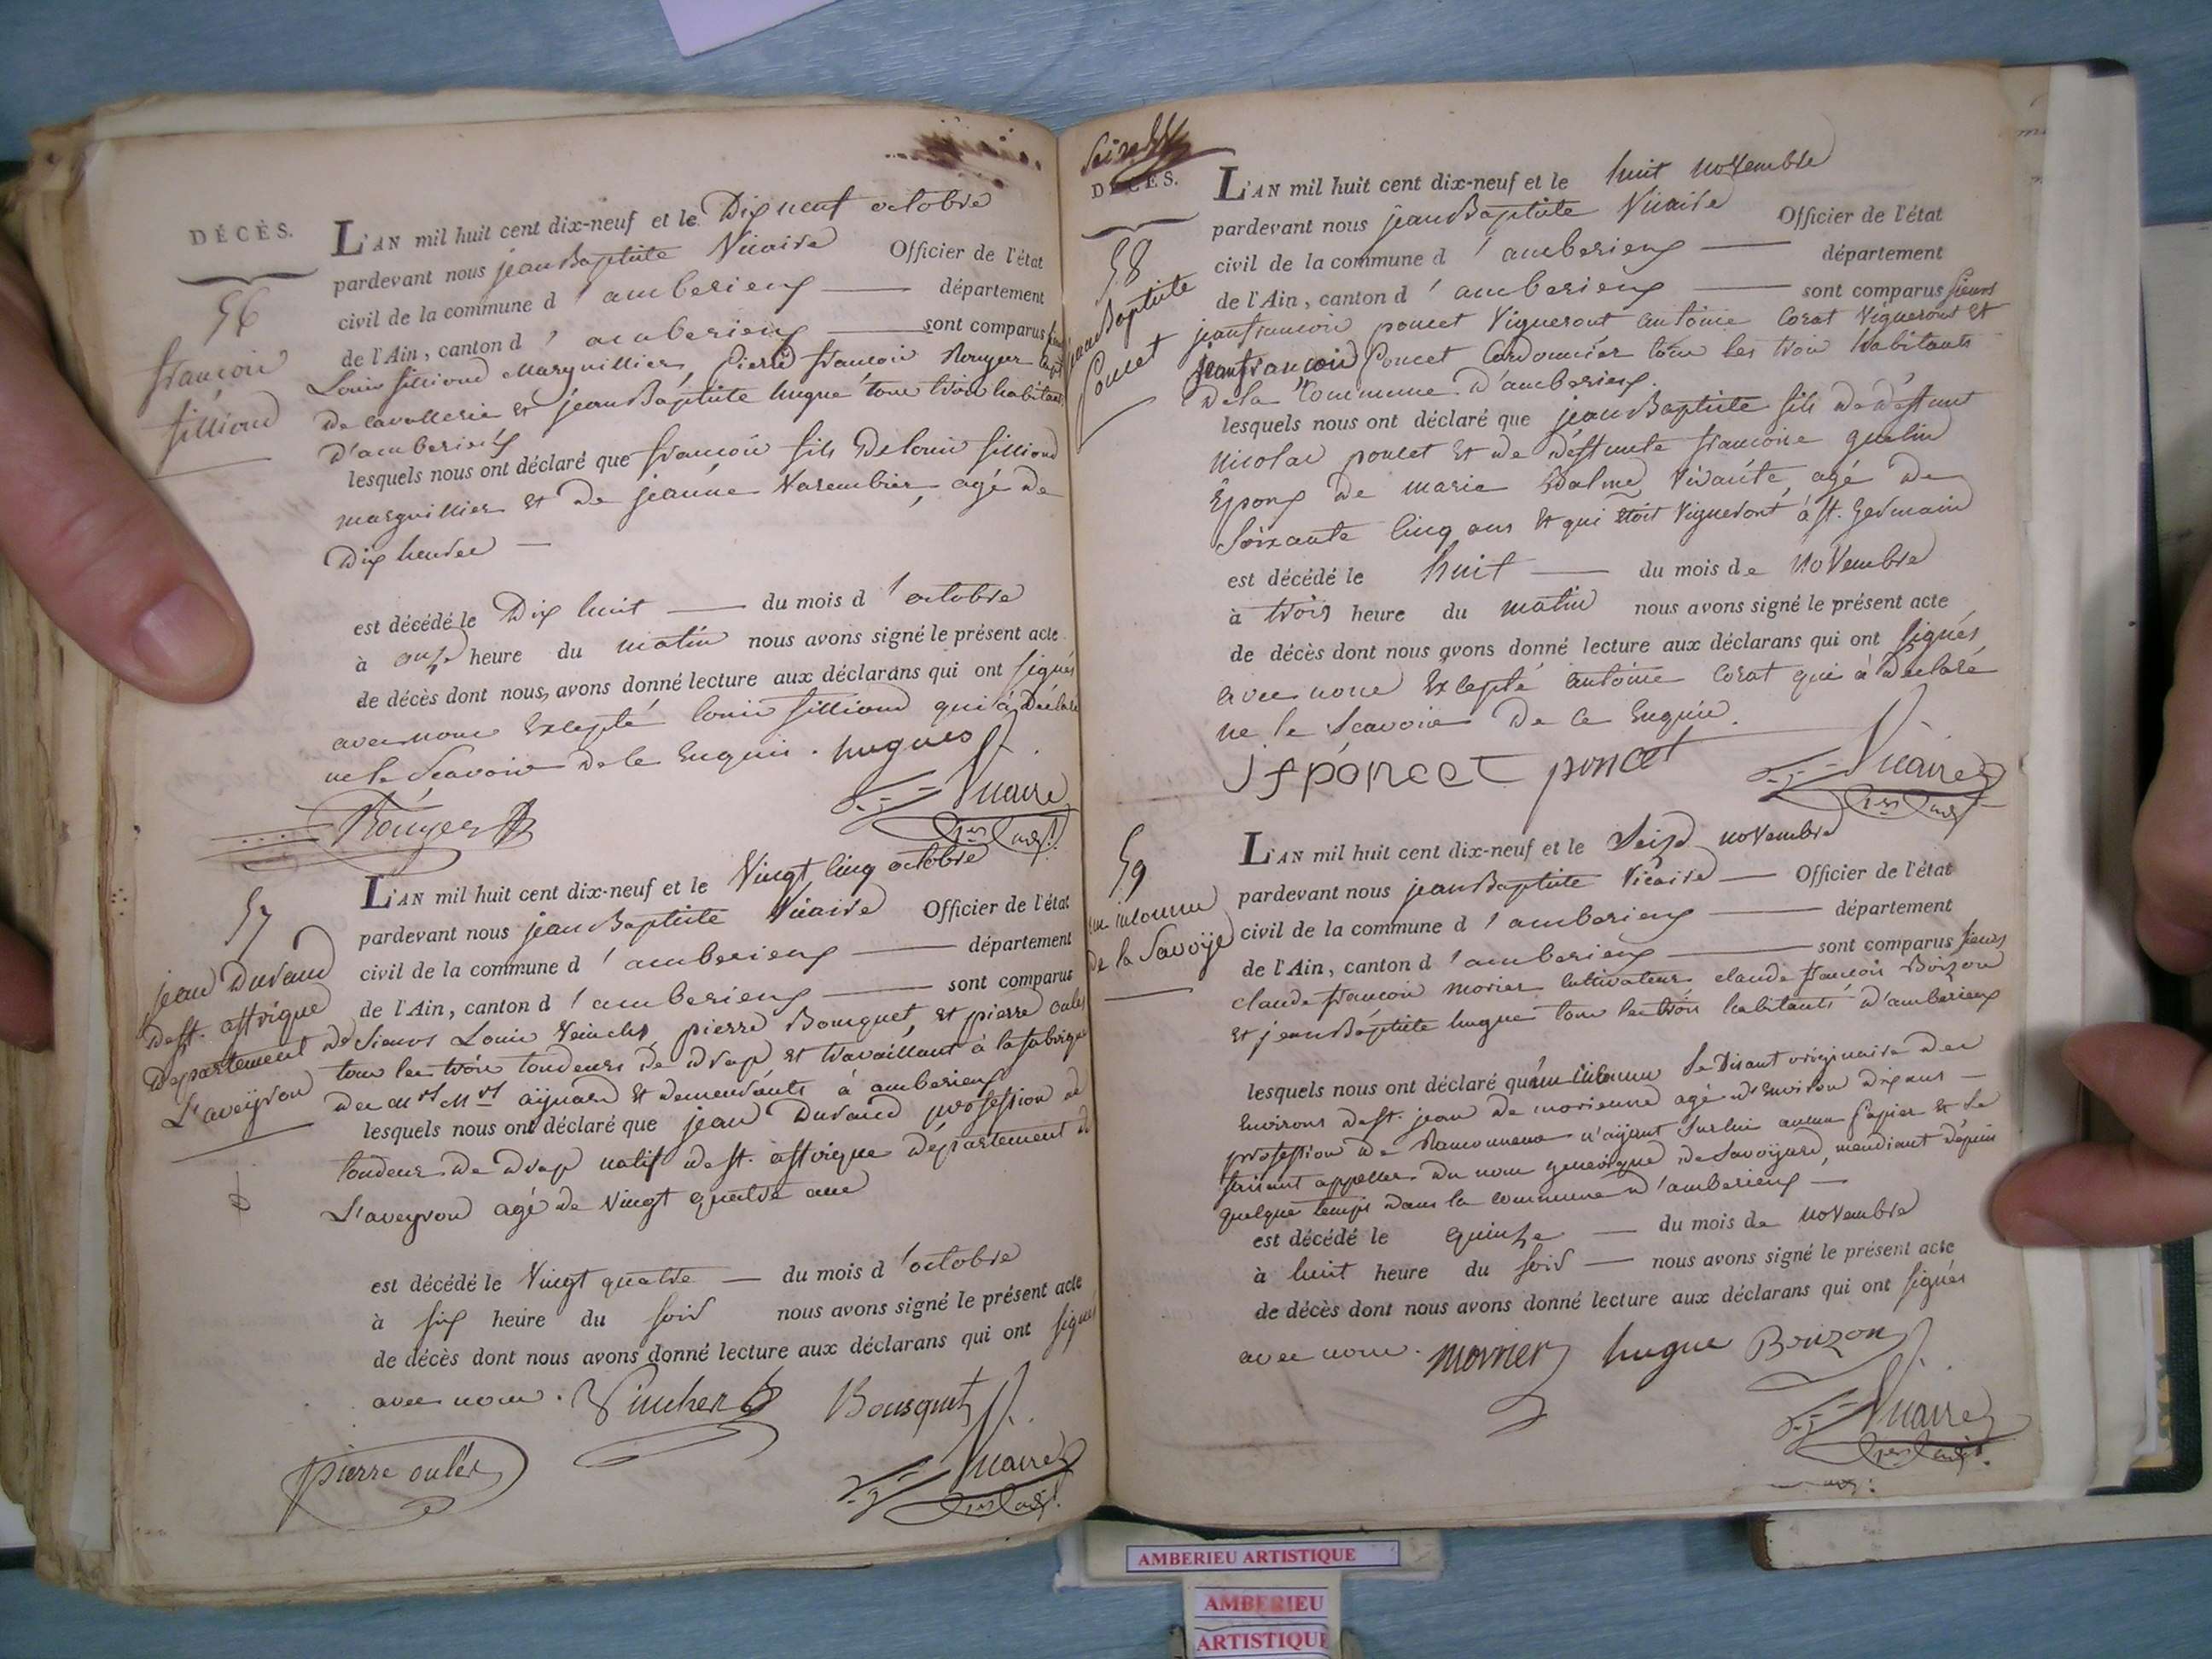 DÉCÈS.
56
françois
filliond
L'AN mil huit cent dix-neuf et le Dix neuf octobre
pardevant nous jean Baptiste Vicaire Officier de l'état
civil de la commune d'amberieux département
de l'Ain, canton d'amberieux sont comparus
Louis filliond Marguillier, pierre françois Rouyer
de cavallerie et jean Baptiste hugue tous trois habitans
D'amberieux
lesquels nous ont déclaré que françois fils De louis filliond
marguillier et de jeanne Varembier, agé de
Dix heures
est décédé le Dix huit du mois d'octobre
à onze heure du matin nous avons signé le présent acte
de décès dont nous avons donné lecture aux déclarans qui ont signés
avec nous Excepté louis filliond qui à Déclaré
ne le Scavoir de ce Enquis. hugues
Rouyer Vicaire
57
jean Durand
de st. affrique
Departement de
L'aveyron
L'AN mil huit cent dix-neuf et le Vingt cinq octobre
pardevant nous jean Baptiste Vicaire Officier de l'état
civil de la commune d'amberieux département
de l'Ain, canton d'amberieux sont comparus
Sieurs Louis pierre Bousquet, et pierre oules
tous les trois tondeurs de drap et travaillant à la fabrique
de Mrs aynard et demeurants à amberieux
lesquels nous ont déclaré que jean Durand profession de
tondeur de drap natif de st. affrique département de
L'aveyron agé de vingt quatre ans
est décédé le Vingt quatre du mois d'octobre
à six heure du soir nous avons signé le présent acte
de décès dont nous avons donné lecture aux déclarans qui ont signés
avec nous. Bousquet
pierre oules Vicaire
DÉCÈS.
58
jean Baptiste
Poncet
L'AN mil huit cent dix-neuf et le huit novembre
pardevant nous jean Baptiste Vicaire Officier de l'état
civil de la commune d'amberieux département
de l'Ain, canton d'amberieux sont comparus sieurs
jean francois poncet Vigneront antoine Corat Vigneront et
jean francois Poncet Cordonnier tous les trois habitants
de la Commune D'amberieux.
lesquels nous ont déclaré que jean Baptiste fils de déffunt
Nicolas poncet et de déffunte francoise quelin
Epoux de marie Balme vivante, agé de
soixante cinq ans et qui étoit Vigneront à st. Germain
est décédé le huit du mois de novembre
à trois heure du matin nous avons signé le présent acte
de décès dont nous avons donné lecture aux déclarans qui ont signés
avec nous Excepté antoine Corat qui à déclaré
ne le Scavoir De ce Enquis.
jf poncet poncet Vicaire
59
un inconnu
de la Savoÿe
L'AN mil huit cent dix-neuf et le Seize novembre
pardevant nous jean Baptiste Vicaire Officier de l'état
civil de la commune d'amberieux département
de l'Ain, canton d'amberieux sont comparus sieurs
claude francois morier cultivateur claude francois Boizon
et jean Baptiste hugue tous les trois habitants d'amberieux
lesquels nous ont déclaré qu'un inconnu se Disant originaire des
Environs de st. jean de morienne agé d'Environ dix ans
profession de Ramonneur n'aÿant sur lui aucun papier et se
faisant appeller du nom generique de Savoÿard, mendiant depuis
quelque temps dans la commune d'amberieux
est décédé le quinze du mois de novembre
à huit heure du soir nous avons signé le présent acte
de décès dont nous avons donné lecture aux déclarans qui ont signés
avec nous. morier hugue Boizon
Vicaire
AMBERIEU ARTISTIQUE
AMBERIEU
ARTISTIQUE